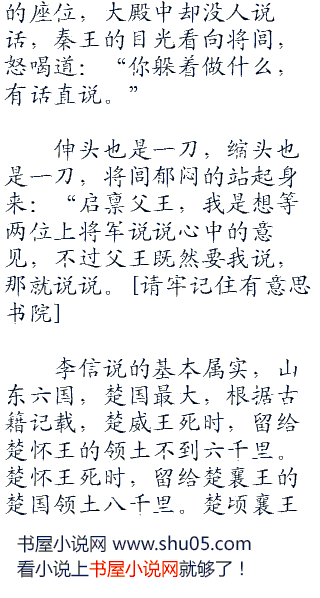 的座位，大殿中却没人说
话，秦王的目光看向将闾，
怒喝道：“你躲着做什么，
有话直说。”
伸头也是一刀，缩头也
是一刀，将闾郁闷的站起身
来：“启禀父王，我是想等
两位上将军说说心中的意
见，不过父王既然要我说，
那就说说。[请牢记住有意思
书院]
李信说的基本属实，山
东六国，楚国最大，根据古
籍记载，楚威王死时，留给
楚怀王的领土不到六千里。
楚怀王死时，留给楚襄王的
楚国领土八千里。楚顷襄王
书屋小说网 www.shu05.com
看小说上书屋小说网就够了！